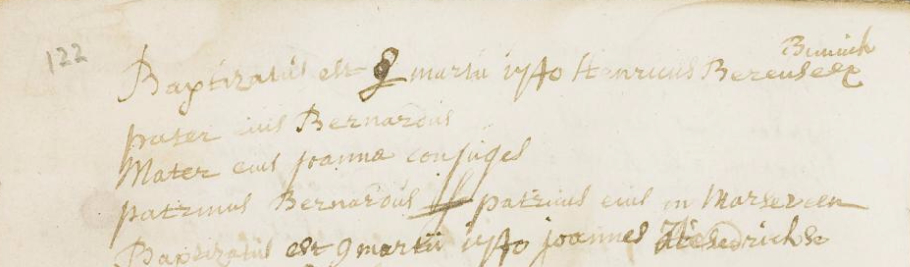 122
Bunnick
Baptizatus est 8 martii 1740 Henricus
pater eius Bernardus
Mater eius joanna conjuges
patrinus Bernardus patruus eius in Marseveen
Baptizatus est 9 martii 1740 joannes